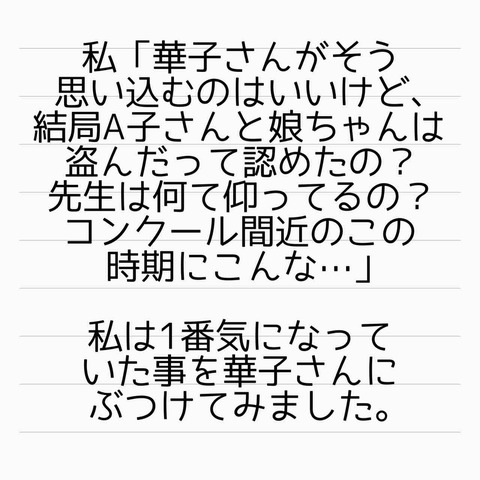 私「華子さんがそう
思い込むのはいいけど、
結局A子さんと娘ちゃんは
盗んだって認めたの？
先生は何て仰ってるの？
コンクール間近のこの
時期にこんな…」
私は1番気になって
いた事を華子さんに
ぶつけてみました。